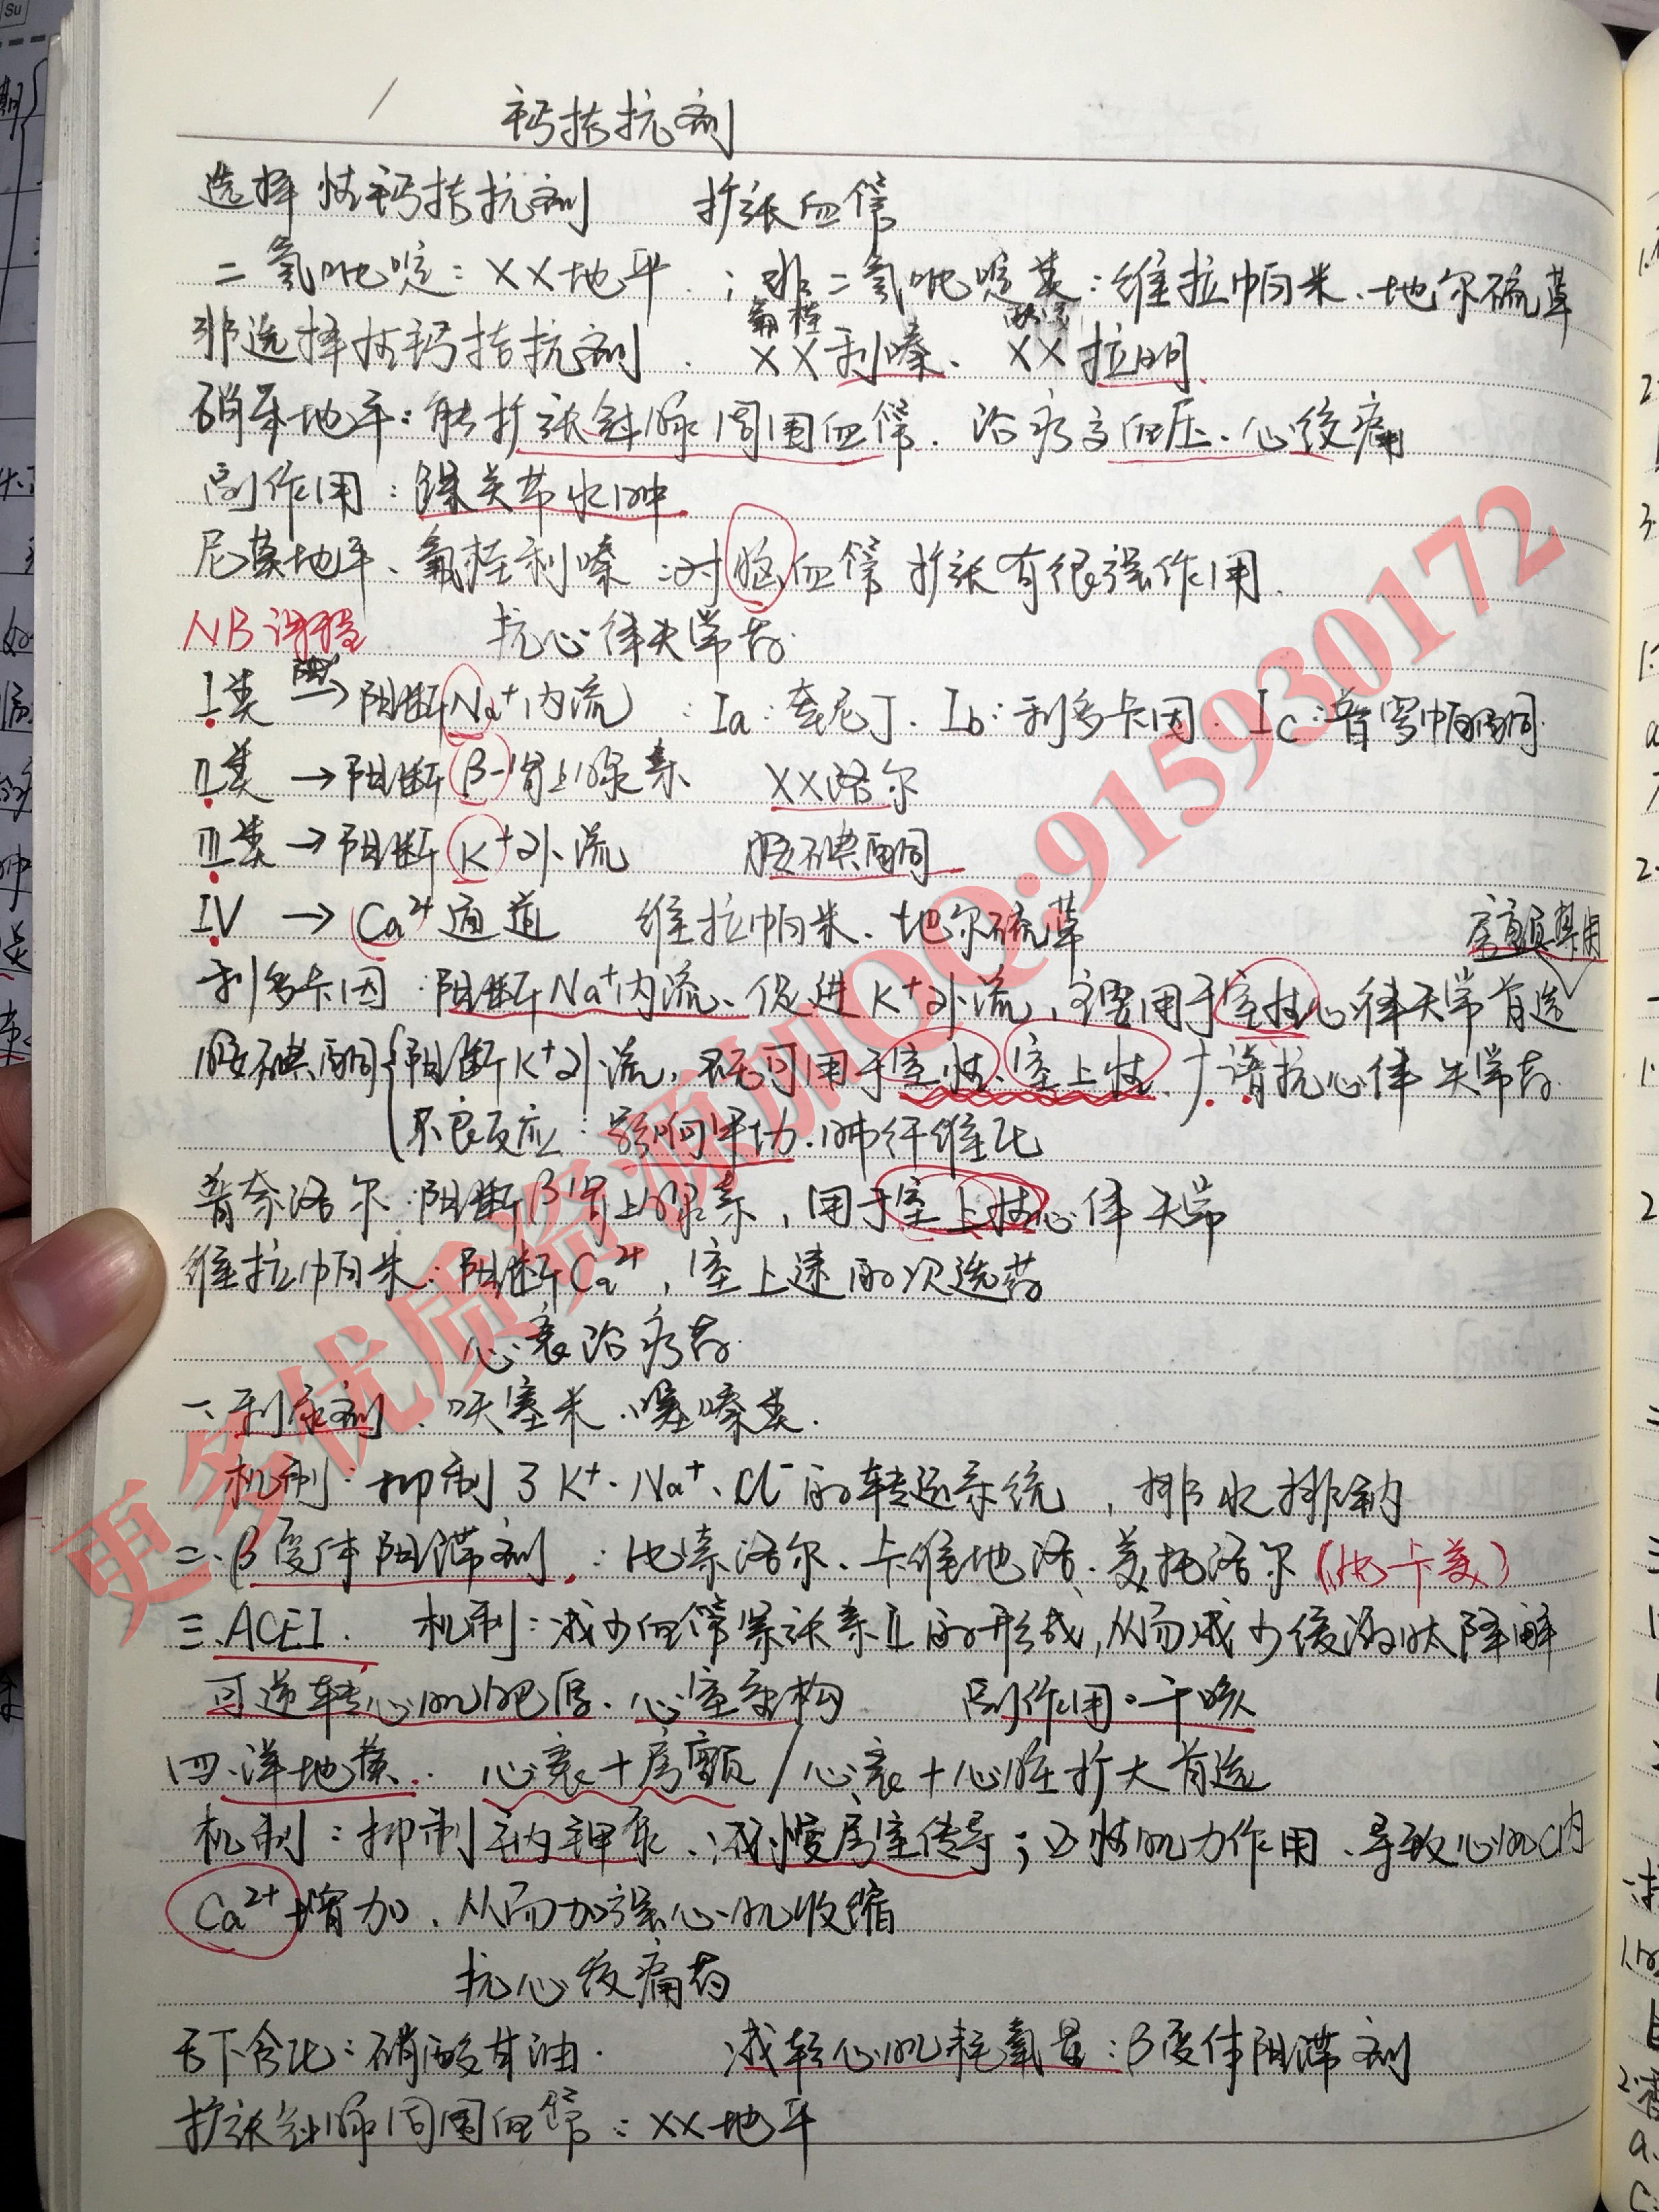 钙拮抗剂
选择性钙拮抗剂 扩张血管
二氢吡啶：XX地平；非二氢吡啶类：维拉帕米、地尔硫䓬
氟桂
非选择性钙拮抗剂 XX利嗪、XX拉明
硝苯地平：能扩张冠脉周围血管、治疗高血压、心绞痛
副作用：踝关节水肿
尼莫地平、氟桂利嗪：对脑血管扩张有很强作用
NB 抗心律失常药
I类→阻断Na+内流：Ia：奎尼丁、Ib：利多卡因、Ic：普罗帕酮
II类→阻断β-肾上腺素 XX洛尔
III类→阻断K+外流 胺碘酮
IV→Ca2+通道 维拉帕米、地尔硫䓬
房颤禁用
利多卡因：阻断Na+内流、促进K+外流，主要用于室性心律失常首选
胺碘酮{阻断K+外流，既可用于室性、室上性、广谱抗心律失常药
不良反应：影响甲功、肺纤维化
普奈洛尔：阻断β肾上腺素，用于室上性心律失常
维拉帕米：阻断Ca2+，室上速的次选药
心衰治疗药
一、利尿剂、呋塞米、噻嗪类
机制：抑制了K+、Na+、Cl-的转运系统，排水排钠
二、β受体阻滞剂：比索洛尔、卡维地洛、美托洛尔（比卡美）
三、ACEI 机制：减少血管紧张素II的形成，从而减少缓激肽降解
可逆转心肌肥厚、心室重构 副作用：干咳
四、洋地黄 心衰+房颤/心衰+心脏扩大首选
机制：抑制钠钾泵、减慢房室传导；正性肌力作用、导致心肌C内
Ca2+增加、从而加强心肌收缩
抗心绞痛药
舌下含化：硝酸甘油 减轻心肌耗氧量：β受体阻滞剂
扩张冠脉周围血管：XX地平
更多优质资源加QQ:915930172